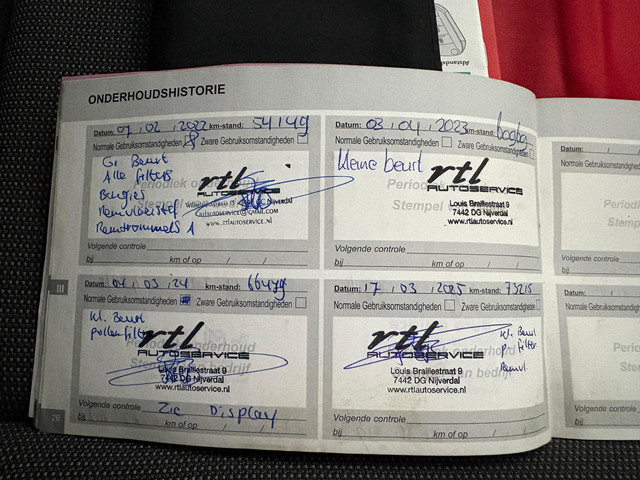 ONDERHOUDSHISTORIE
Datum: 07 , 02 , 2022 km-stand: 54149
Normale Gebruiksomstandigheden Zware Gebruiksomstandigheden
Gr. Beurt
Alle filters
Bougies
Remvloeistof
Remtrommels
rtl
AUTOSERVICE
www.rtlautoservice.nl
Volgende controle
bij km of op / /
Datum: 03 , 04 , 2023 km-stand:
Normale Gebruiksomstandigheden Zware Gebruiksomstandigheden
kleine beurt
rtl
AUTOSERVICE
Periodiek
Stempel
Louis Braillestraat 9
7442 DG Nijverdal
www.rtlautoservice.nl
Volgende controle
bij km of op / /
Datum: 04 , 03 , 24 km-stand: 66479
Normale Gebruiksomstandigheden Zware Gebruiksomstandigheden
Kl. Beurt
pollenfilter
rtl
AUTOSERVICE
Louis Braillestraat 9
7442 DG Nijverdal
www.rtlautoservice.nl
Volgende controle Zie Display
bij km of op / /
Datum: 17 , 03 , 2025 km-stand: 73215
Normale Gebruiksomstandigheden Zware Gebruiksomstandigheden
rtl
AUTOSERVICE
Kl. Beurt
P. filter
Remvl.
Louis Braillestraat 9
7442 DG Nijverdal
www.rtlautoservice.nl
Volgende controle
bij km of op / /
Datum: / /
Normale Gebruiksom
Period
Stempel
Volgende controle
bij
Datum: / /
Normale Gebruiksom
Volgende controle
bij